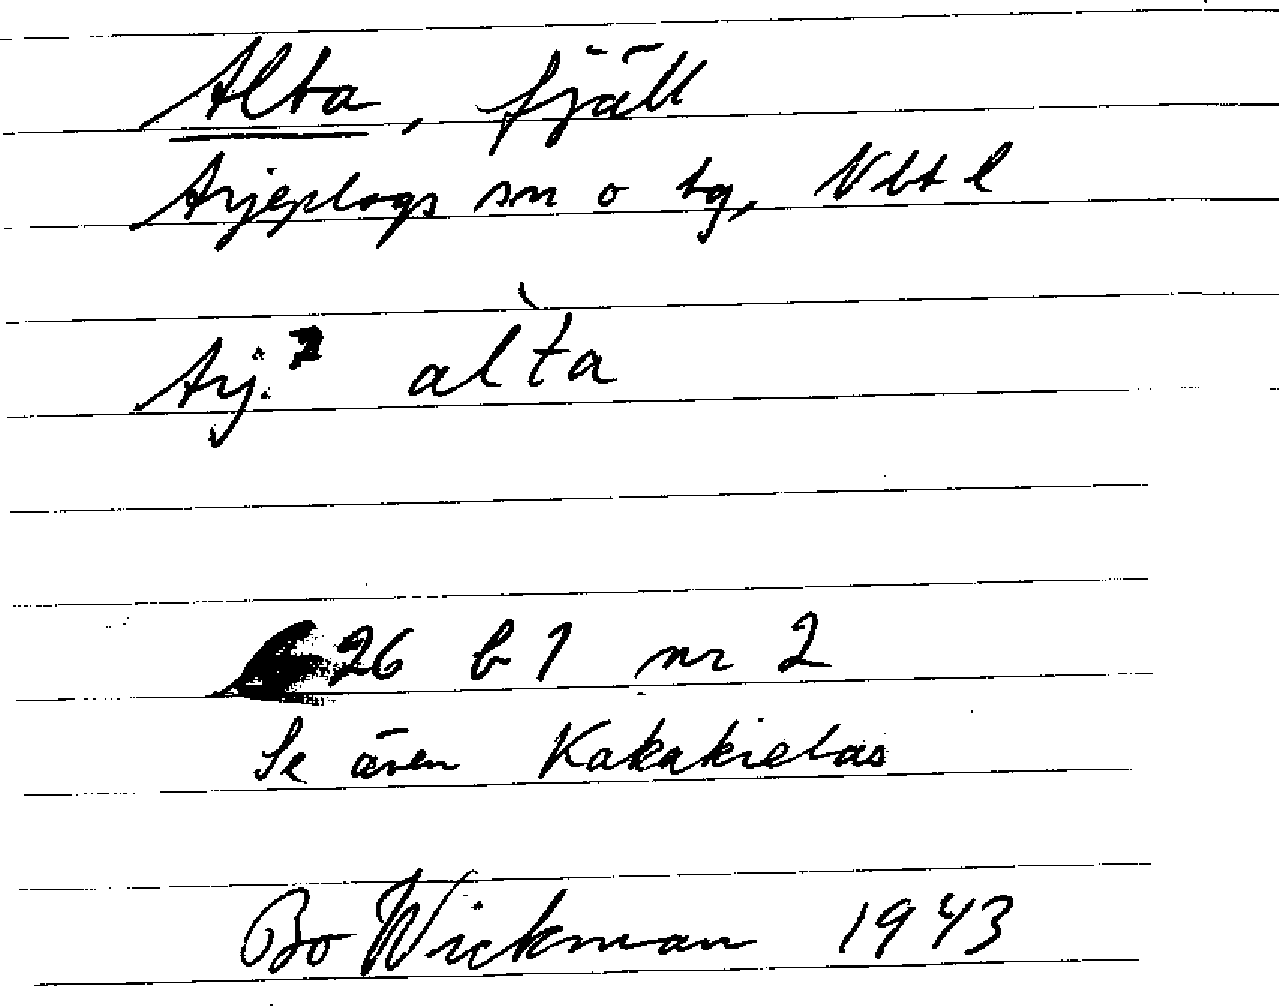 Alta, fjäll
Arjeplogs sn o tg, Vbt l
Arj. 2 al̀ta
26 b 1 nr 2
Se även Kakakielas
Bo Wickman 1943